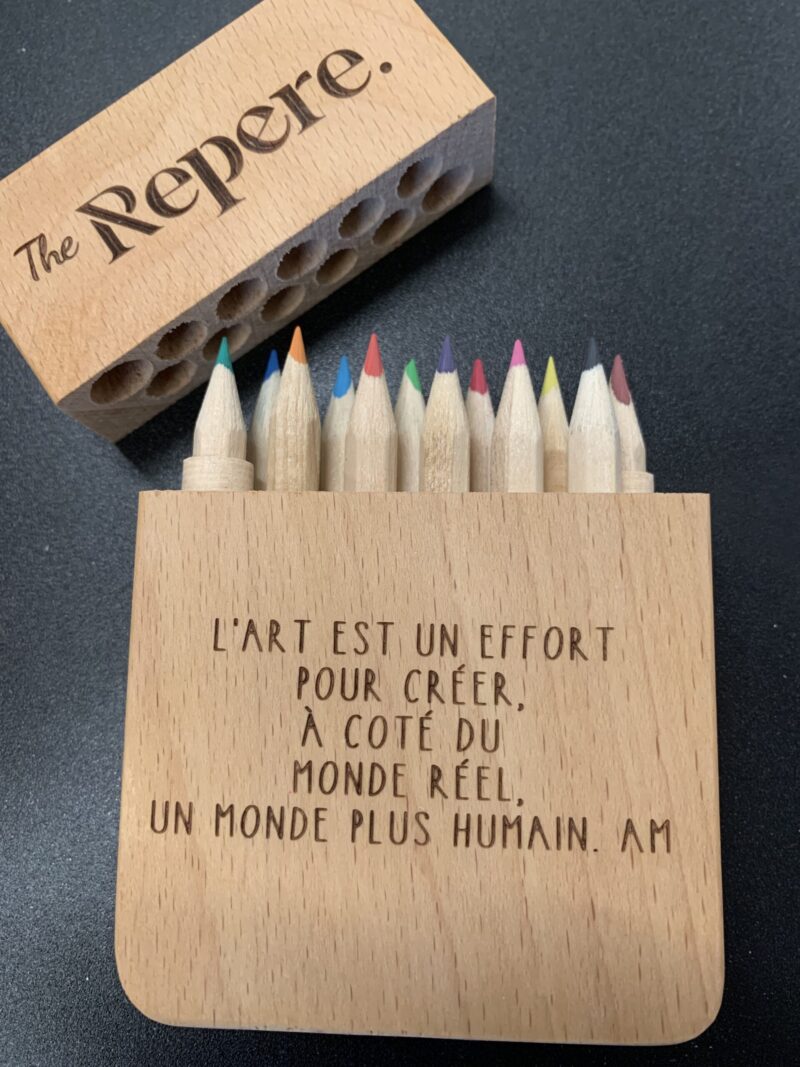 The Repere.
L'ART EST UN EFFORT
POUR CRÉER,
À COTÉ DU
MONDE RÉEL,
UN MONDE PLUS HUMAIN. AM